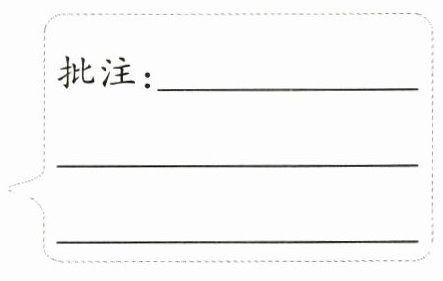 批注：